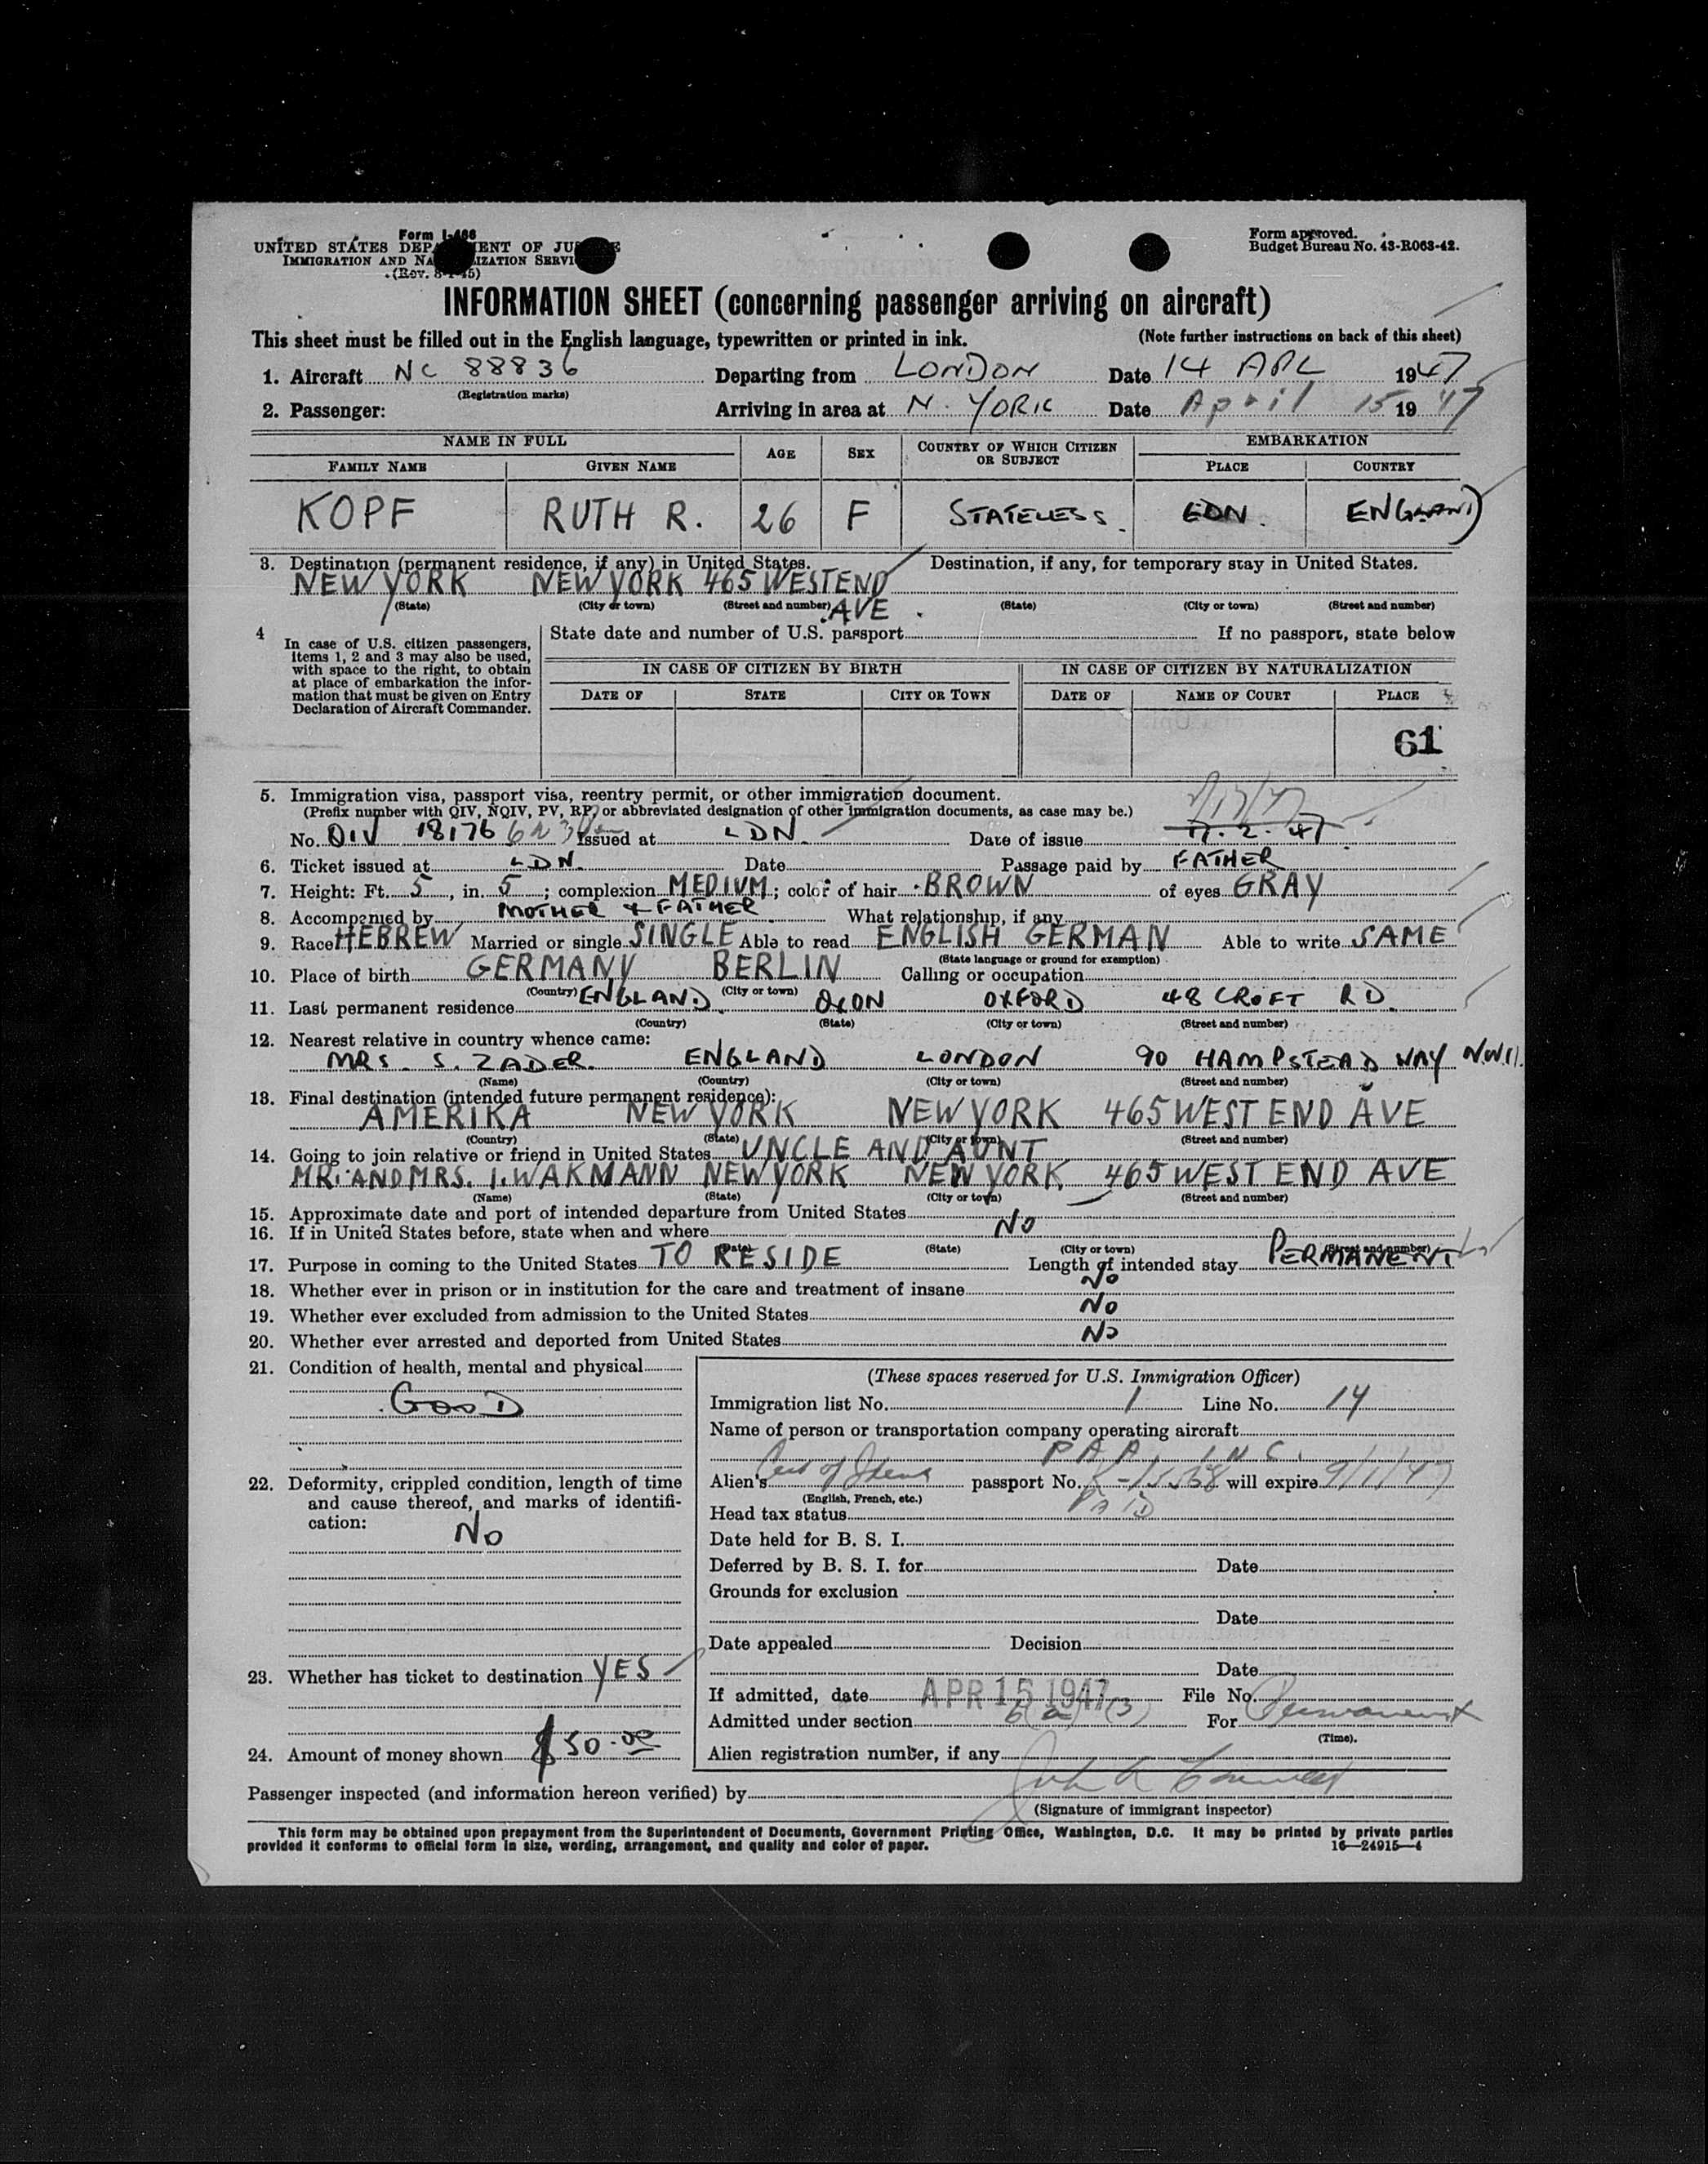 Form I-466
UNITED STATES DEPARTMENT OF JUSTICE
IMMIGRATION AND NATURALIZATION SERVICE
(Rev. 8-1-45)
Form approved.
Budget Bureau No. 43-R063-42.
INFORMATION SHEET (concerning passenger arriving on aircraft)
This sheet must be filled out in the English language, typewritten or printed in ink. (Note further instructions on back of this sheet)
1. Aircraft NC 88836 Departing from LONDON Date 14 APL 1947
(Registration marks)
2. Passenger: Arriving in area at N. YORK Date April 15 1947
NAME IN FULL AGE SEX COUNTRY OF WHICH CITIZEN OR SUBJECT EMBARKATION
FAMILY NAME GIVEN NAME PLACE COUNTRY
KOPF RUTH R. 26 F STATELESS. LDN. ENGLAND
3. Destination (permanent residence, if any) in United States. Destination, if any, for temporary stay in United States.
NEW YORK NEW YORK 465 WESTEND
(State) (City or town) (Street and number) AVE. (State) (City or town) (Street and number)
4 In case of U.S. citizen passengers, items 1, 2 and 3 may also be used, with space to the right, to obtain at place of embarkation the information that must be given on Entry Declaration of Aircraft Commander.
State date and number of U.S. passport If no passport, state below
IN CASE OF CITIZEN BY BIRTH IN CASE OF CITIZEN BY NATURALIZATION
DATE OF STATE CITY OR TOWN DATE OF NAME OF COURT PLACE
61
5. Immigration visa, passport visa, reentry permit, or other immigration document.
(Prefix number with QIV, NQIV, PV, RP, or abbreviated designation of other immigration documents, as case may be.)
No. QIV 18176 Issued at LDN. Date of issue 17.2.47
6. Ticket issued at LDN. Date Passage paid by FATHER
7. Height: Ft. 5, in. 5; complexion MEDIUM; color of hair BROWN of eyes GRAY
8. Accompanied by MOTHER & FATHER What relationship, if any
9. Race HEBREW Married or single SINGLE Able to read ENGLISH GERMAN Able to write SAME
(State language or ground for exemption)
10. Place of birth GERMANY BERLIN Calling or occupation
(Country) (City or town)
11. Last permanent residence ENGLAND. OXON OXFORD 48 CROFT RD.
(Country) (State) (City or town) (Street and number)
12. Nearest relative in country whence came:
MRS. S. ZADER. ENGLAND LONDON 90 HAMPSTEAD WAY N.W.11.
(Name) (Country) (City or town) (Street and number)
13. Final destination (intended future permanent residence):
AMERIKA NEW YORK NEW YORK 465 WEST END AVE
(Country) (State) (City or town) (Street and number)
14. Going to join relative or friend in United States UNCLE AND AUNT
MR. AND MRS. I. WAKMANN NEW YORK NEW YORK 465 WEST END AVE
(Name) (State) (City or town) (Street and number)
15. Approximate date and port of intended departure from United States
16. If in United States before, state when and where NO
(Date) (State) (City or town) (Street and number)
17. Purpose in coming to the United States TO RESIDE Length of intended stay PERMANENT
18. Whether ever in prison or in institution for the care and treatment of insane NO
19. Whether ever excluded from admission to the United States NO
20. Whether ever arrested and deported from United States NO
21. Condition of health, mental and physical
GOOD
22. Deformity, crippled condition, length of time and cause thereof, and marks of identification:
NO
23. Whether has ticket to destination YES
24. Amount of money shown $50.00
(These spaces reserved for U.S. Immigration Officer)
Immigration list No. 1 Line No. 14
Name of person or transportation company operating aircraft
P A A INC.
Alien's Cert of Idens passport No. will expire 9/1/47
(English, French, etc.)
Head tax status PAID
Date held for B. S. I.
Deferred by B. S. I. for Date
Grounds for exclusion
Date
Date appealed Decision
Date
If admitted, date APR 15 1947 File No.
Admitted under section 6(a)(3) For Permanent
(Time).
Alien registration number, if any
Passenger inspected (and information hereon verified) by
(Signature of immigrant inspector)
This form may be obtained upon prepayment from the Superintendent of Documents, Government Printing Office, Washington, D.C. It may be printed by private parties
provided it conforms to official form in size, wording, arrangement, and quality and color of paper. 16—24915—4